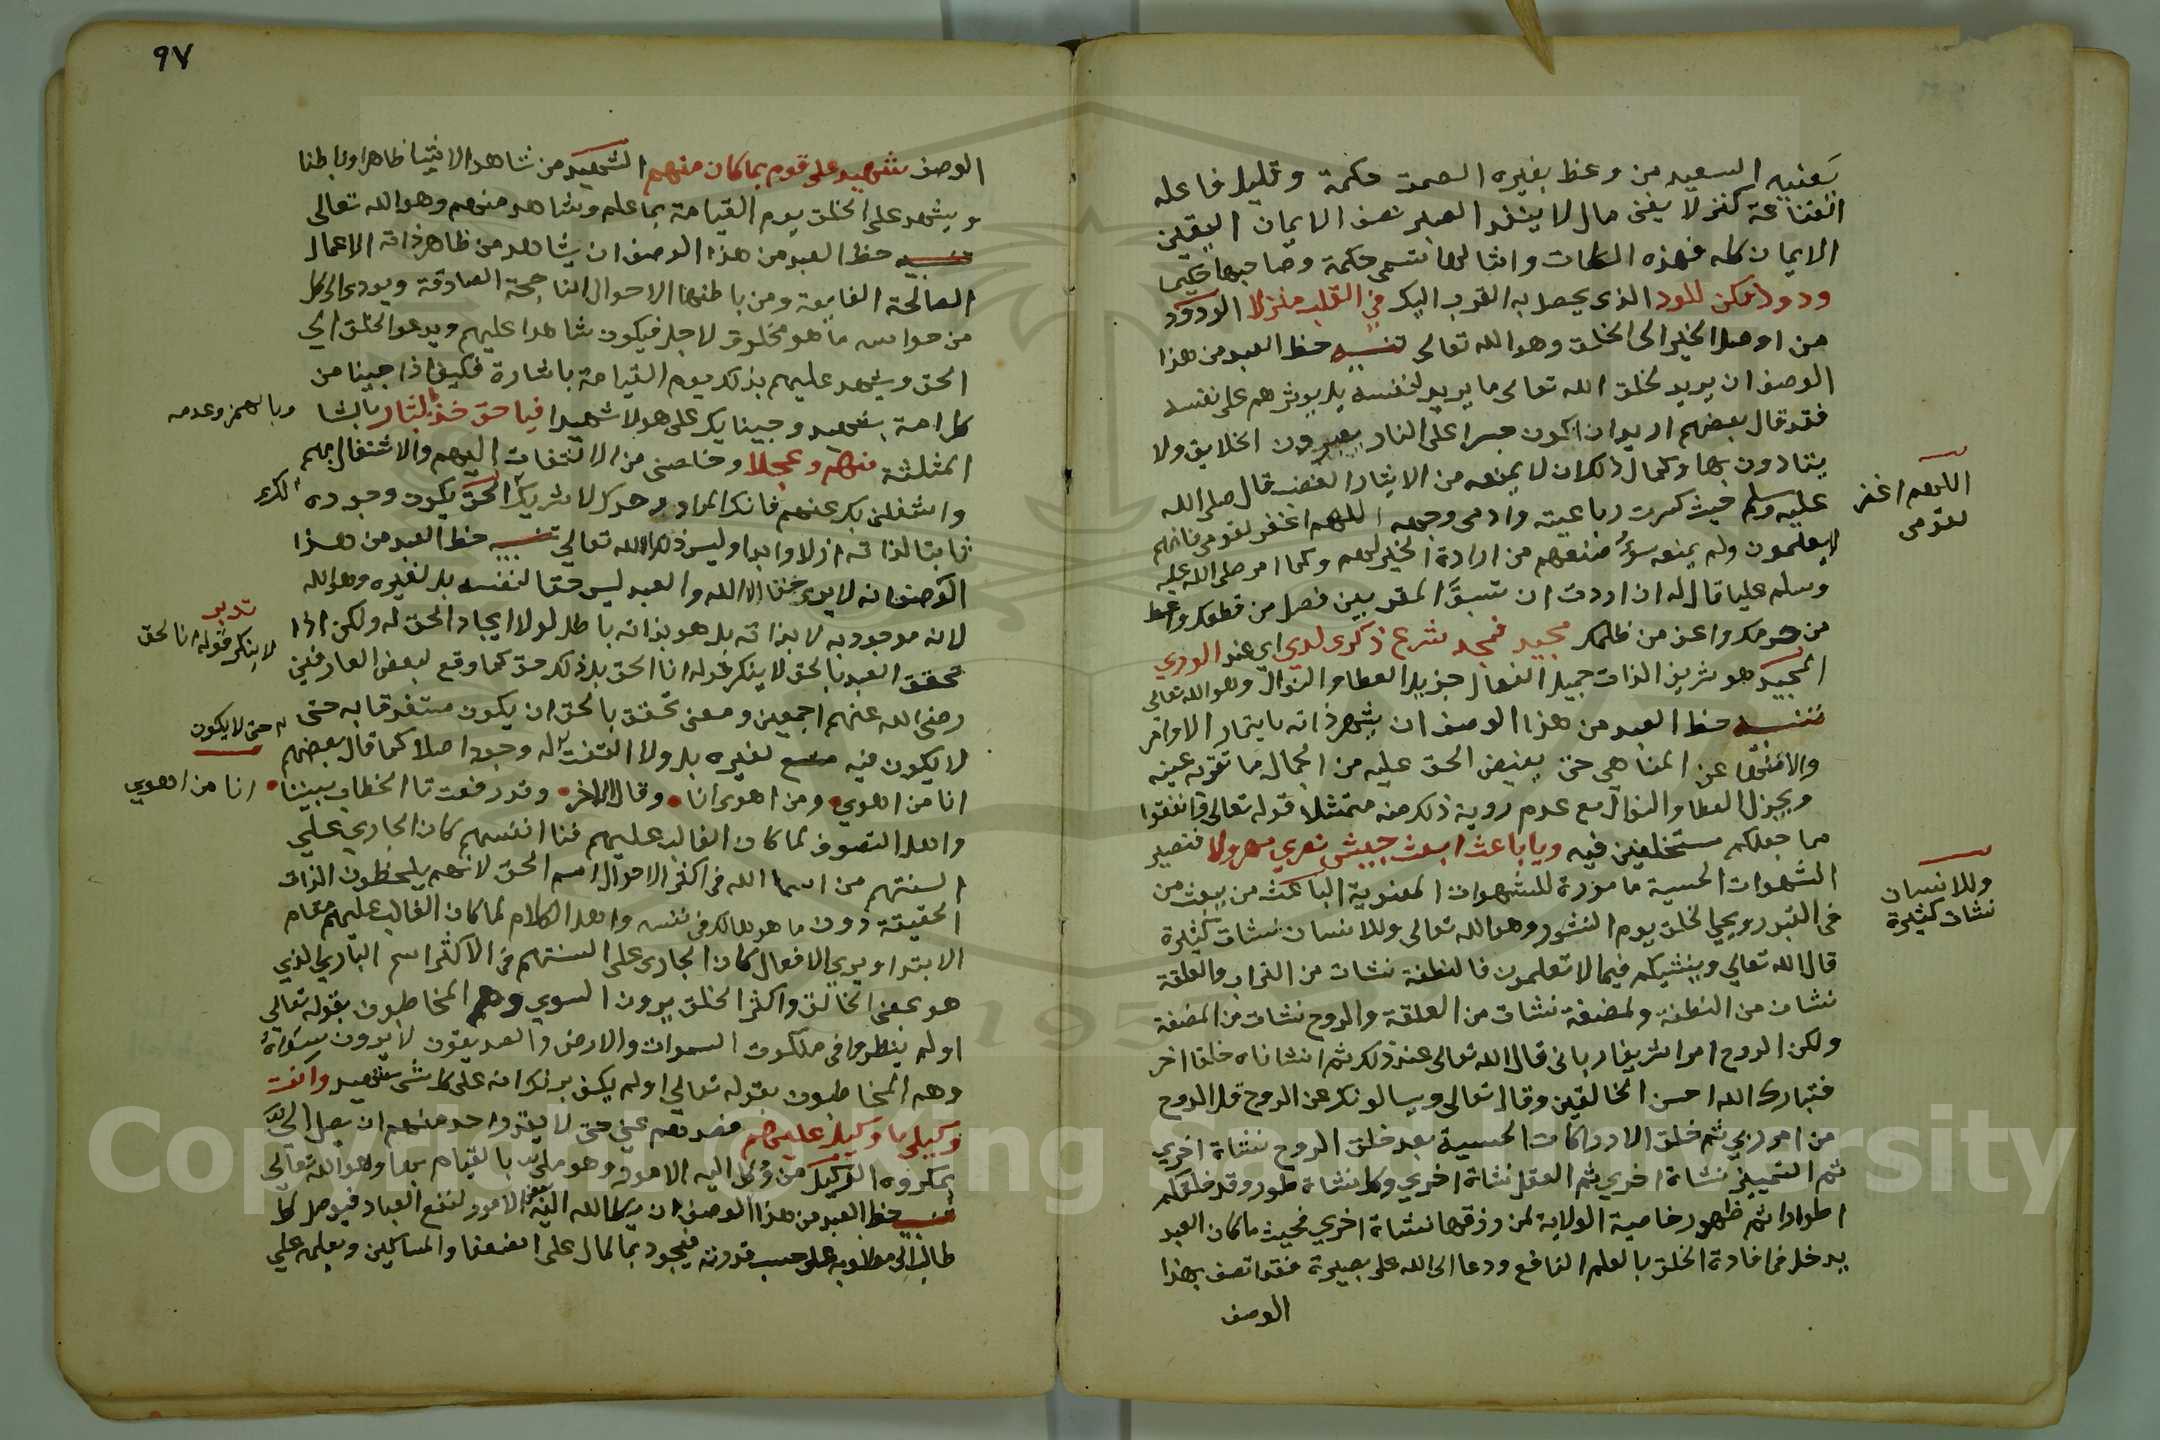 يعنيه السعيد من وعظ بغيره الصمت حكمة وقليل فاعله
القناعة كنز لا يفنى مال لا ينفد الصبر نصف الايمان اليقين
الايمان كله فهذه الكلمات وامثالها تسمى حكمة وصاحبها حكيما
ودود فكن للود الذي يحصل به القرب اليك في القلب منزلا الودود
من اوصل الخير الى الخلق وهو الله تعالى تنبيه حظ العبد من هذا
الوصف ان يريد لخلق الله تعالى ما يريد لنفسه بل يوثرهم على نفسه
فقد قال بعضهم اريد ان اكون جسرا على النار يعبرون الخلايق ولا
يتاذون بها وكمال ذلك ان لا يمنعه من الايثار الغضب قال صلى الله
عليه وسلم حيث كسرت رباعيته وادمى وجهه اللهم اغفر لقومى فانهم
لا يعلمون ولم يمنعه سوء صنعهم من ارادة الخير لهم وكما امر صلى الله عليه
وسلم عليا قال له ان اردت ان تسبق المقربين فصل من قطعك واعط
من حرمك واعف عن من ظلمك مجيد فمجد شرع ذكرى لدى اي عند الوري
المجيد هو شريف الذات جميل الفعال جزيل العطا والنوال وهو الله تعالى
تنبيه حظ العبد من هذا الوصف ان يشرف ذاته بايتمار الاوامر
والانتها عن المناهي حتى يفيض الحق عليه من الجمال ما تقر به عينه
ويجزل العطا والنوال مع عدم روية ذلك منه متمثلا قوله تعالى وانفقوا
مما جعلكم مستخلفين فيه ويا باعث ابعث جيش نصري مهرولا فتصير
الشهوات الحسية مامورة للشهوات المعنوية الباعث من يبعث من
في القبور ويحي الخلق يوم النشور وهو الله تعالى وللانسان نشات كثيرة
قال الله تعالى وينشيكم فيما لا تعلمون فالنطفة نشات من التراب والعلقة
نشات من النطفة والمضغة نشات من العلقة والروح نشات من المضغة
ولكن الروح امرا شريفا ربانى قال الله تعالى عند ذلك ثم انشاناه خلقا اخر
فتبارك الله احسن الخالقين وقال تعالى ويسالونك عن الروح قل الروح
من امر ربي ثم خلق الادراكات الحسية بعد خلق الروح نشاة اخري
ثم التمييز نشاة اخري ثم العقل نشاة اخري وكل نشاة طور وقد خلقكم
اطوارا ثم ظهور خاصية الولاية لمن رزقها نشاة اخري فحيث ما كان العبد
يدخل في افادة الخلق بالعلم النافع ودعا الى الله على بصيرة فقد اتصف بهذا
الوصف
اللهم اغفر
لقومى
وللانسان
نشات كثيرة
٩٧
الوصف شهيد على قوم بما كان منهم الشهيد من شاهد الاشيا ظاهرا وباطنا
ويشهد على الخلق يوم القيامة بما علم وشاهد منهم وهو الله تعالى
تنبيه حظ العبد من هذا الوصف ان يشاهد من ظاهر ذاته الاعمال
الصالحة الفايقة ومن باطنها الاحوال الناجحة الصادقة ويودى الى كل
من حواسه ما هو مخلوق لاجله فيكون شاهدا عليهم ويدعو الخلق الى
الحق ويشهد عليهم بذلك يوم القيامة باشارة فكيف اذا جينا من
كل امة بشهيد وجينا بك على هولا شهيدا فيا حق خذ بالثار بالثا
المثلثة منهم وعجلا وخلصنى من الالتفات اليهم والاشتغال بهم
واشغلنى بك عنهم فانك المراد وحدك لا شريك لك الحق يكون وجوده
ثابتا لذاته ازلا وابدا وليس ذلك الا لله تعالى تنبيه حظ العبد من هذا
الوصف انه لا يرى حقا الا الله والعبد ليس حقا لنفسه بل لغيره وهو الله
لانه موجود به لا بذاته بل هو بذاته باطل لولا ايجاد الحق له ولكن اذا
تحقق العبد بالحق لا ينكر قوله انا الحق بل ذلك حق كما وقع لبعض العارفين
رضى الله عنهم اجمعين ومعنى تحقق بالحق ان يكون مستغرقا به حتى
لا يكون فيه متسع لغيره بل ولا التفت له وجود اصلا كما قال بعضهم
انا من اهوي ومن اهوى انا وقال الاخر وقد رفعت تا الخطاب بيننا
واهل التصوف لما كان الغالب عليهم فنا انفسهم كان الجاري على
السنتهم من اسما الله في اكثر الاحوال اسم الحق لانهم يلحظون الذات
الحقيقة دون ما هو هالك في نفسه واهل الكلام لما كان الغالب عليهم مقام
الابتدا ويري الافعال كان الجارى على السنتهم في الاكثر اسم الباري الذي
هو بمعنى الخالق واكثر الخلق يرون السوي وهم المخاطبون بقوله تعالي
اولم ينظروا في ملكوت السموات والارض والصديقون لا يرون سواه
وهم المخاطبون بقوله تعالى اولم يكف بربك انه على كل شى شهيد وانت
وكيلي يا وكيل عليهم فصدهم عنى حتى لا يقدر احد منهم ان يصل الى
بمكروه الوكيل من وكل اليه الامور وهو ملى بالقيام بها وهو الله تعالى
تنبيه حظ العبد من هذا الوصف ان يكل الله اليه بعض الامور لنفع العباد فيوصل كل
طالب الى مطلوبه على حسب قدرته فيجود بالمال على الضعفا والمساكين وبعلمه علي
وبالهمز وعدمه
تدبر
لا ينكر قوله انا الحق
حتى لا يكون
انا من اهوي
Copyright © King Saud University
195